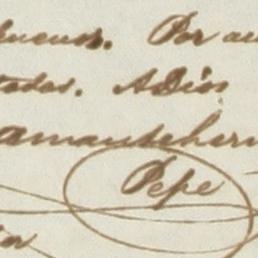 buenos. Por au
todos. ADios
amantehern
Pepe